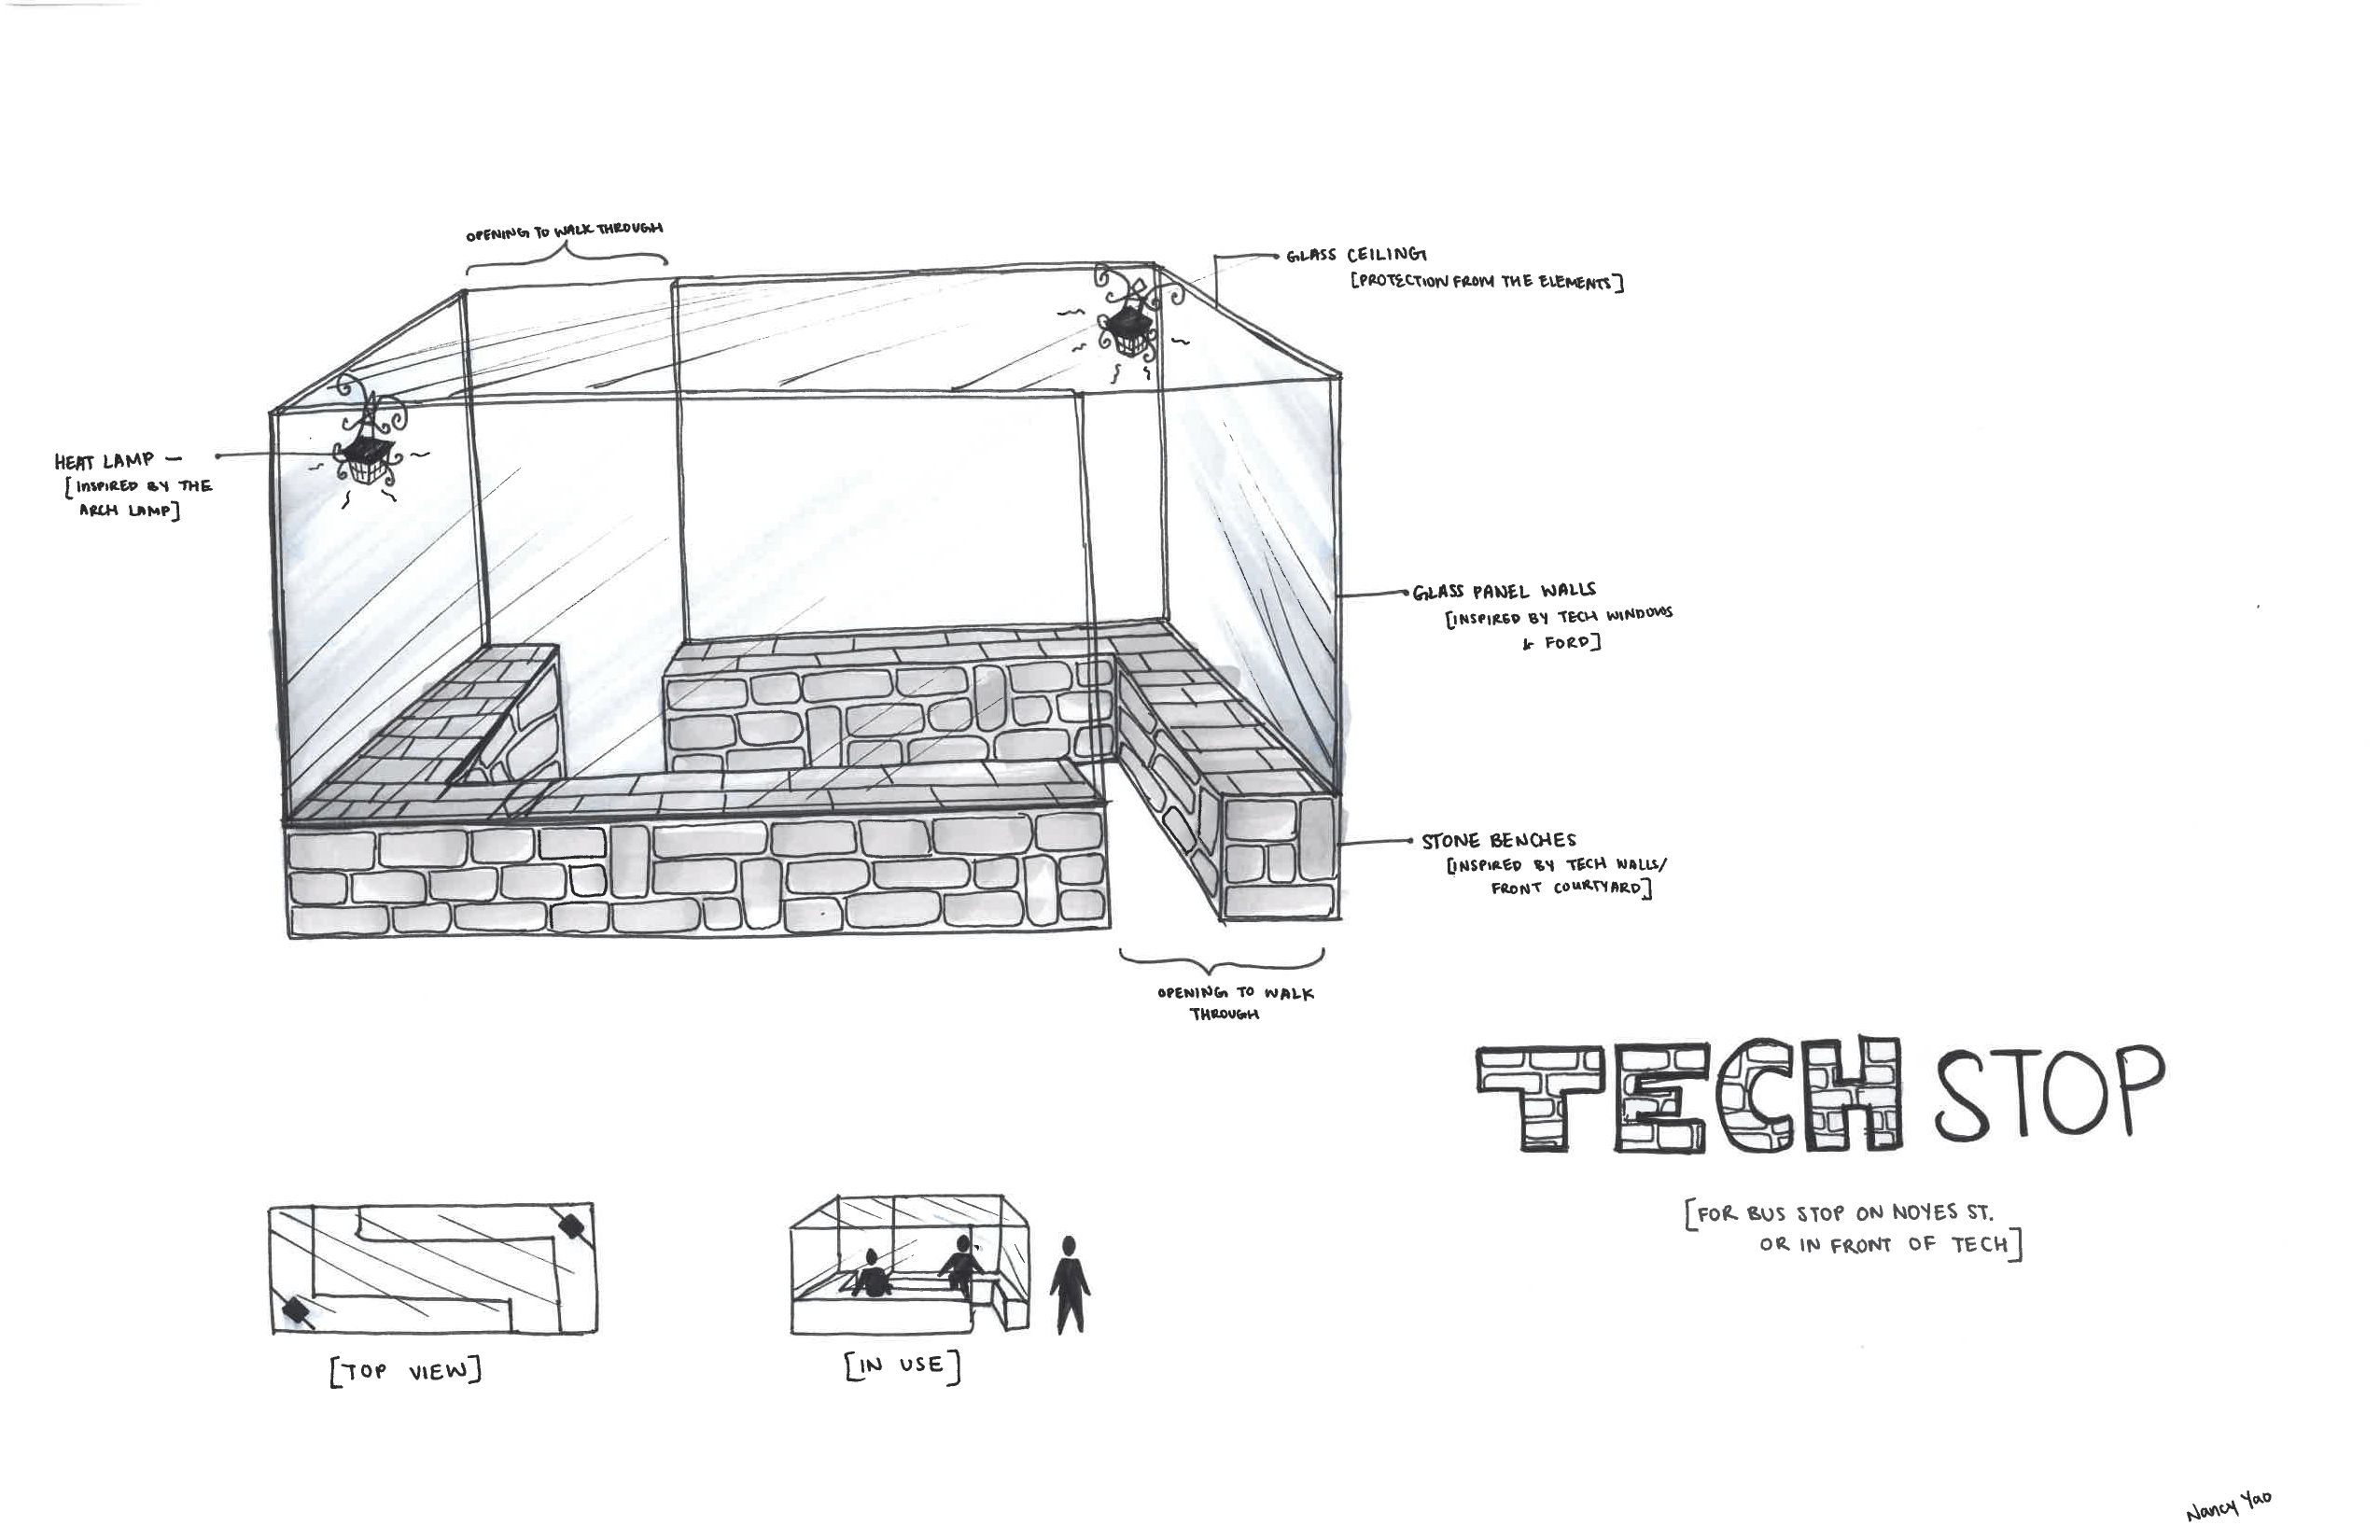 OPENING TO WALK THROUGH
GLASS CEILING
[PROTECTION FROM THE ELEMENTS]
HEAT LAMP —
[INSPIRED BY THE
ARCH LAMP]
GLASS PANEL WALLS
[INSPIRED BY TECH WINDOWS
& FORD]
STONE BENCHES
[INSPIRED BY TECH WALLS/
FRONT COURTYARD]
OPENING TO WALK
THROUGH
TECH STOP
[FOR BUS STOP ON NOYES ST.
OR IN FRONT OF TECH]
[TOP VIEW]
[IN USE]
Nancy Yao